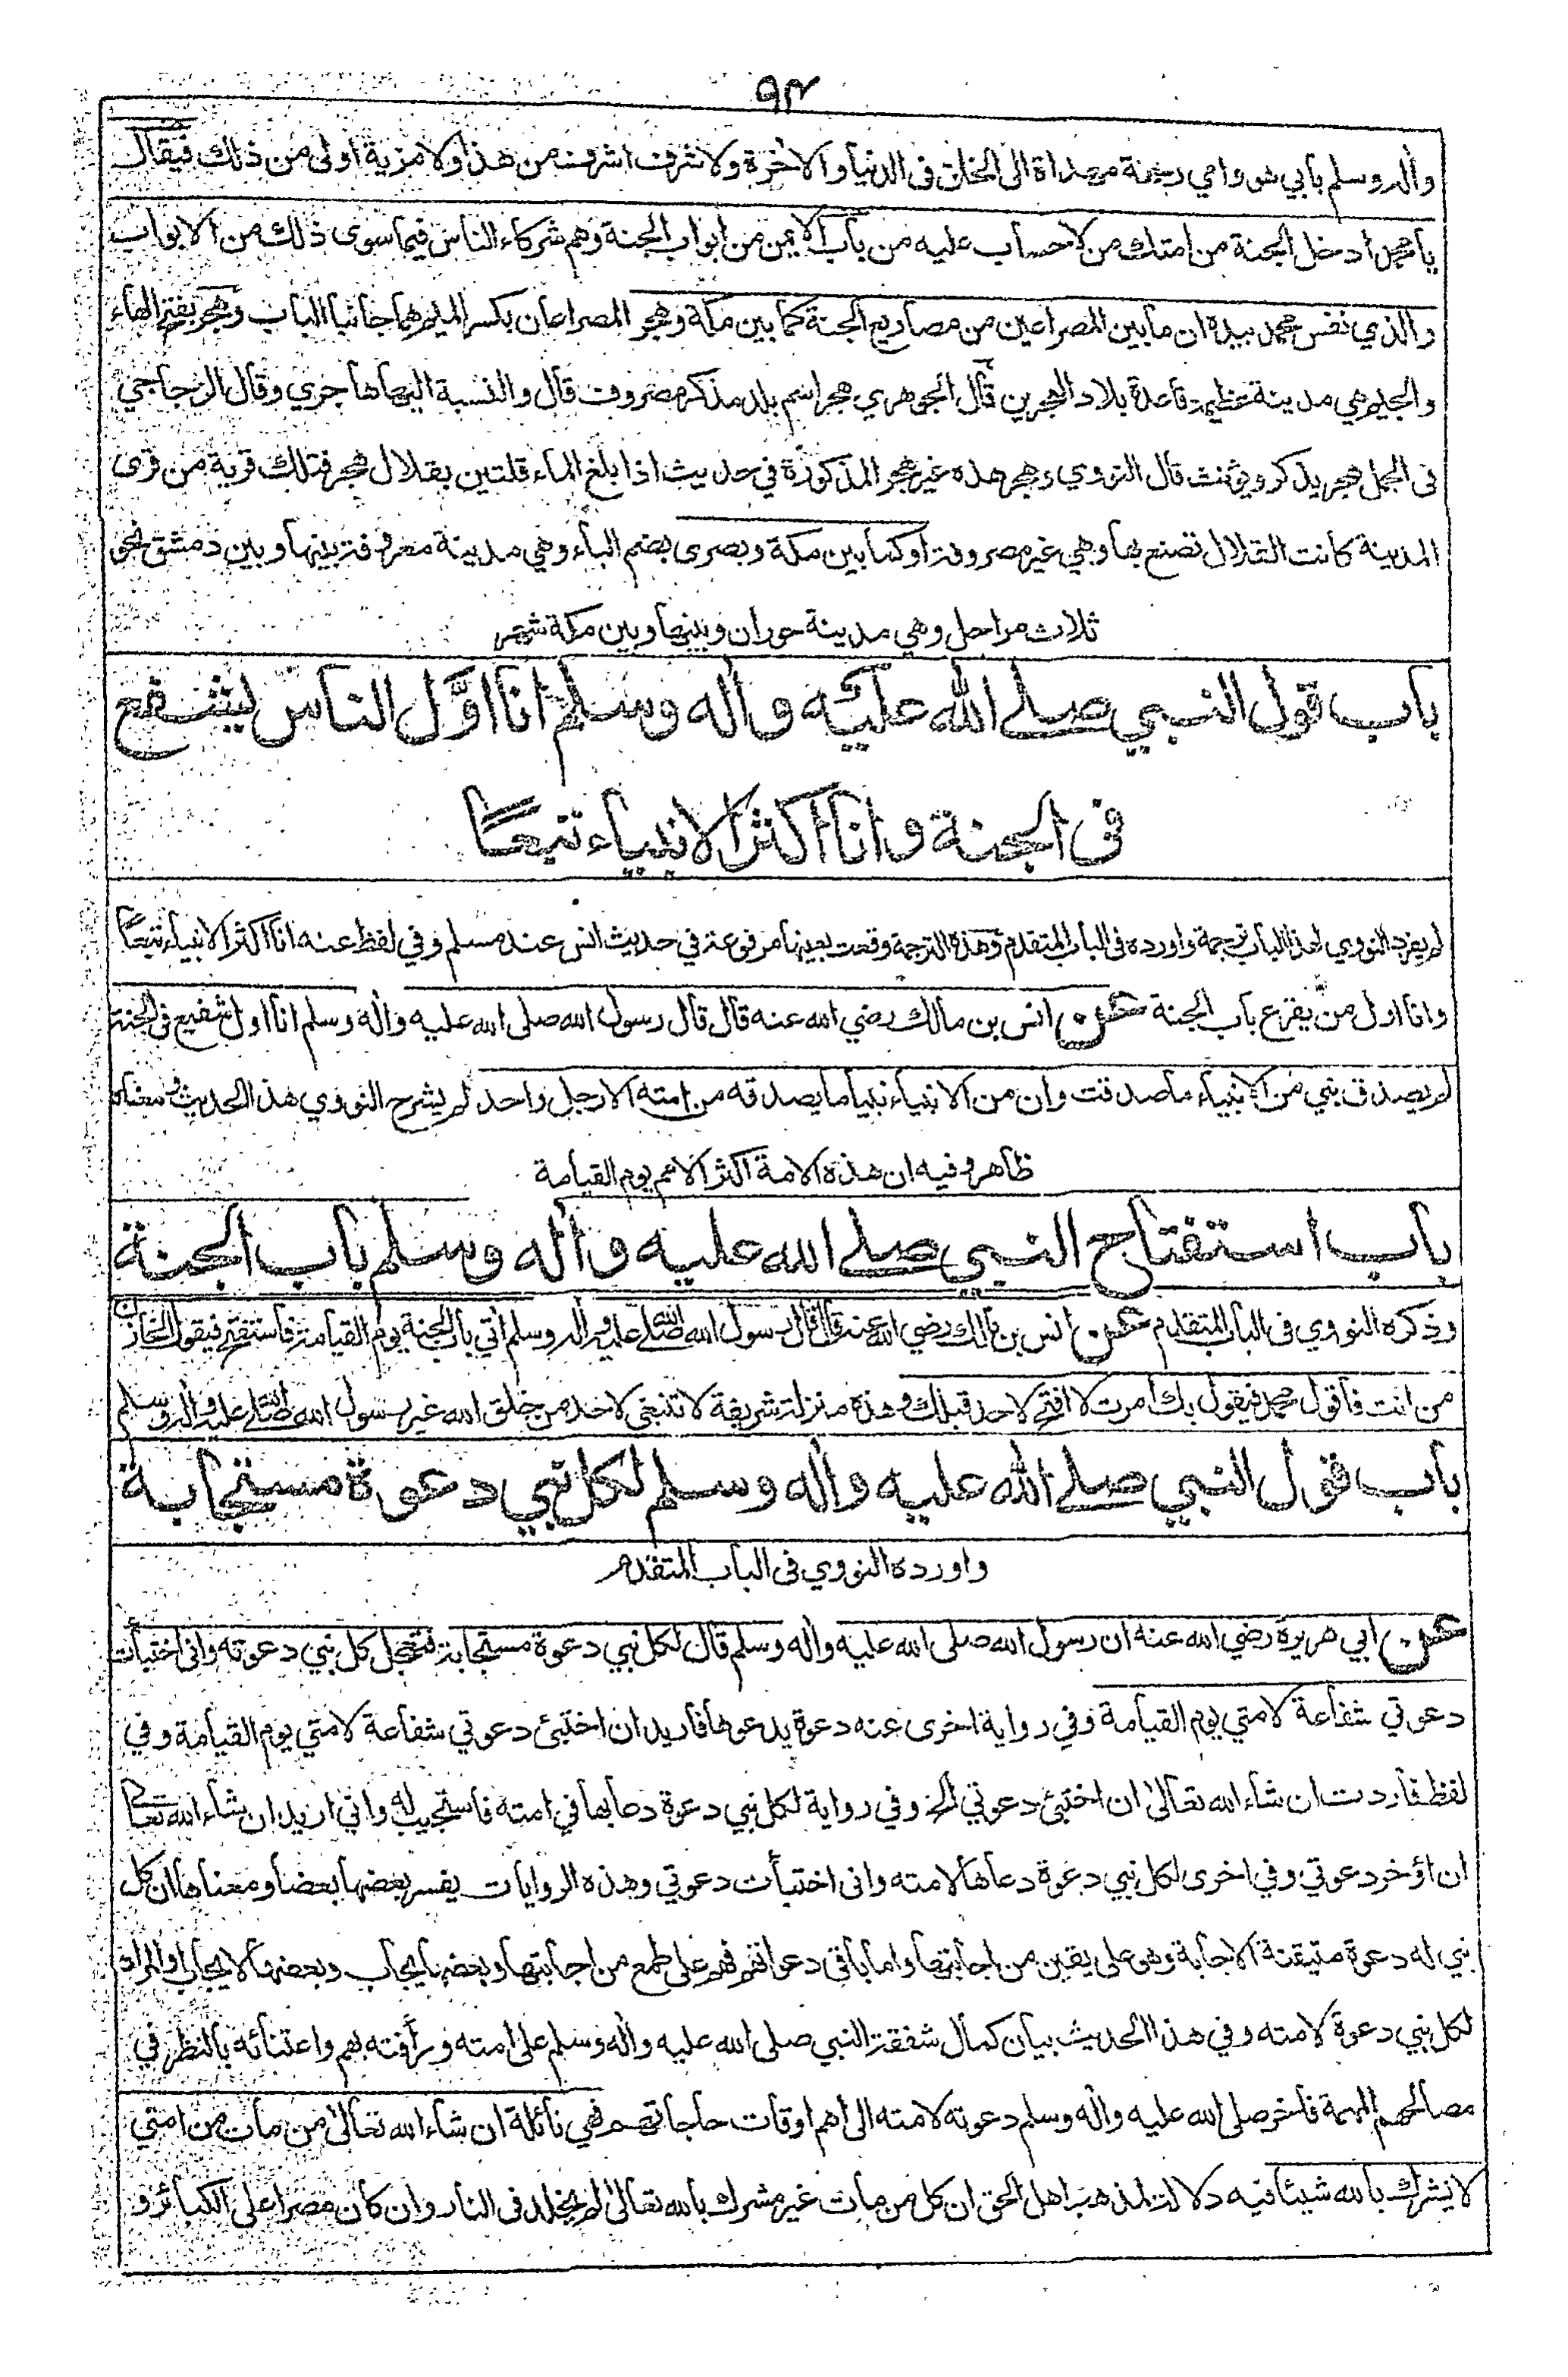 ٩٣
واله وسلم بابي هو وامي رحمة مهداة الى الخلق فى الدنيا والاخرة ولا شرف اشرف من هذا ولا مزية اولى من ذلك فيقال
يا محمد ادخل الجنة من امتك من لا حساب عليه من باب الايمن من ابواب الجنة وهم شركاء الناس فيما سوى ذلك من الابواب
والذي نفس محمد بيده ان ما بين المصراعين من مصاريع الجنة كما بين مكة وهجر المصراعان بكسر الميم هما جانبا الباب وهجر بفتح الهاء
والجيم هي مدينة عظيمة قاعدة بلاد البحرين قال الجوهري هجر اسم بلد مذكر مصروف قال والنسبة اليها هاجري وقال الزجاجي
فى الجمل هجر يذكر ويؤنث قال النووي وهجر هذه غير هجر المذكورة في حديث اذا بلغ الماء قلتين بقلال هجر فتلك قرية من قرى
المدينة كانت القلال تصنع بها وهي غير مصروفة او كما بين مكة وبصرى بضم الباء وهي مدينة معروفة بينها وبين دمشق نحو
ثلاث مراحل وهي مدينة حوران وبينها وبين مكة شهر
باب قول النبي صلى الله عليه واله وسلم انا اول الناس يشفع
فى الجنة وانا اكثر الانبياء تبعًا
لم يفرد النووي لهذا الباب ترجمة واورده فى الباب المتقدم وهذه الترجمة وقعت بعينها مرفوعة في حديث انس عند مسلم وفي لفظ عنه انا اكثر الانبياء تبعًا
وانا اول من يقرع باب الجنة عن انس بن مالك رضي الله عنه قال قال رسول الله صلى الله عليه واله وسلم انا اول شفيع فى الجنة
لم يصدق نبي من الانبياء ما صدقت وان من الانبياء نبيا ما يصدقه من امته الا رجل واحد لم يشرح النووي هذا الحديث ومعناه
ظاهر وفيه ان هذه الامة اكثر الامم يوم القيامة
باب استفتاح النبي صلى الله عليه واله وسلم باب الجنة
وذكره النووي فى الباب المتقدم عن انس بن مالك رضي الله عنه قال قال رسول الله صلى الله عليه واله وسلم اتي باب الجنة يوم القيامة فاستفتح فيقول الخازن
من انت فاقول محمد فيقول بك امرت لا افتح لاحد قبلك وهذه منزلة شريفة لا تنبغي لاحد من خلق الله غير رسول الله صلى الله عليه واله وسلم
باب قول النبي صلى الله عليه واله وسلم لكل نبي دعوة مستجابة
واورده النووي فى الباب المتقدم
عن ابي هريرة رضي الله عنه ان رسول الله صلى الله عليه واله وسلم قال لكل نبي دعوة مستجابة فتعجل كل نبي دعوته وانى اختبأت
دعوتي شفاعة لامتي يوم القيامة وفي رواية اخرى عنه دعوة يدعوها فاريد ان اختبئ دعوتي شفاعة لامتي يوم القيامة وفي
لفظ فاردت ان شاء الله تعالى ان اختبئ دعوتي الخ وفي رواية لكل نبي دعوة دعا بها في امته فاستجيب له واني اريد ان شاء الله تعالى
ان اؤخر دعوتي وفي اخرى لكل نبي دعوة دعاها لامته وانى اختبأت دعوتي وهذه الروايات يفسر بعضها بعضا ومعناها ان كل
نبي له دعوة متيقنة الاجابة وهو على يقين من اجابتها واما باقى دعواتهم فهم على طمع من اجابتها وبعضها يجاب وبعضها لا يجاب والمراد
لكل نبي دعوة لامته وفي هذا الحديث بيان كمال شفقة النبي صلى الله عليه واله وسلم على امته ورأفته بهم واعتنائه بالنظر في
مصالحهم المهمة فاخر صلى الله عليه واله وسلم دعوته لامته الى اهم اوقات حاجاتهم فهي نائلة ان شاء الله تعالى من مات من امتي
لا يشرك بالله شيئا فيه دلالة لمذهب اهل الحق ان كل من مات غير مشرك بالله تعالى لم يخلد فى النار وان كان مصرا على الكبائر و